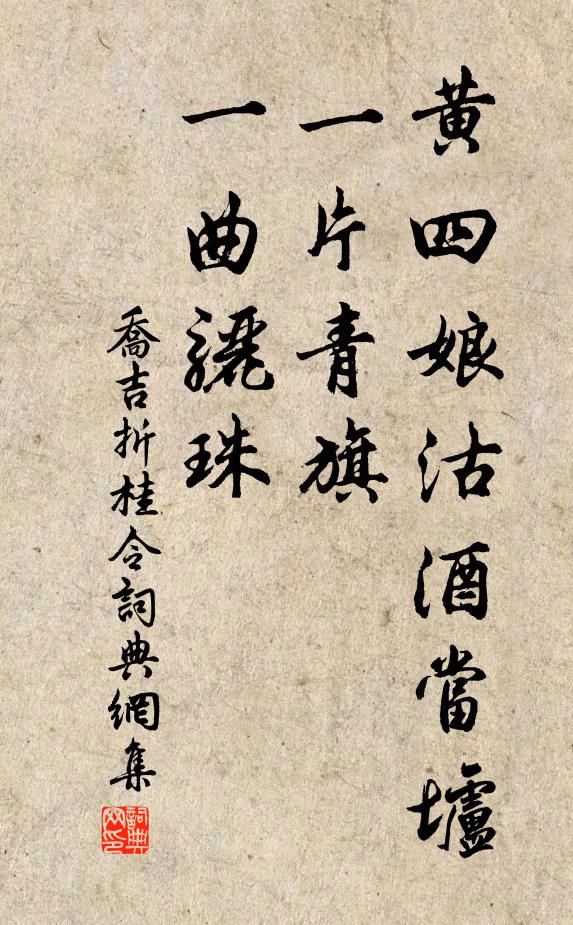 黃四娘沽酒當壚
一片青旗
一曲驪珠
喬吉折桂令詞典網集
詞典网印